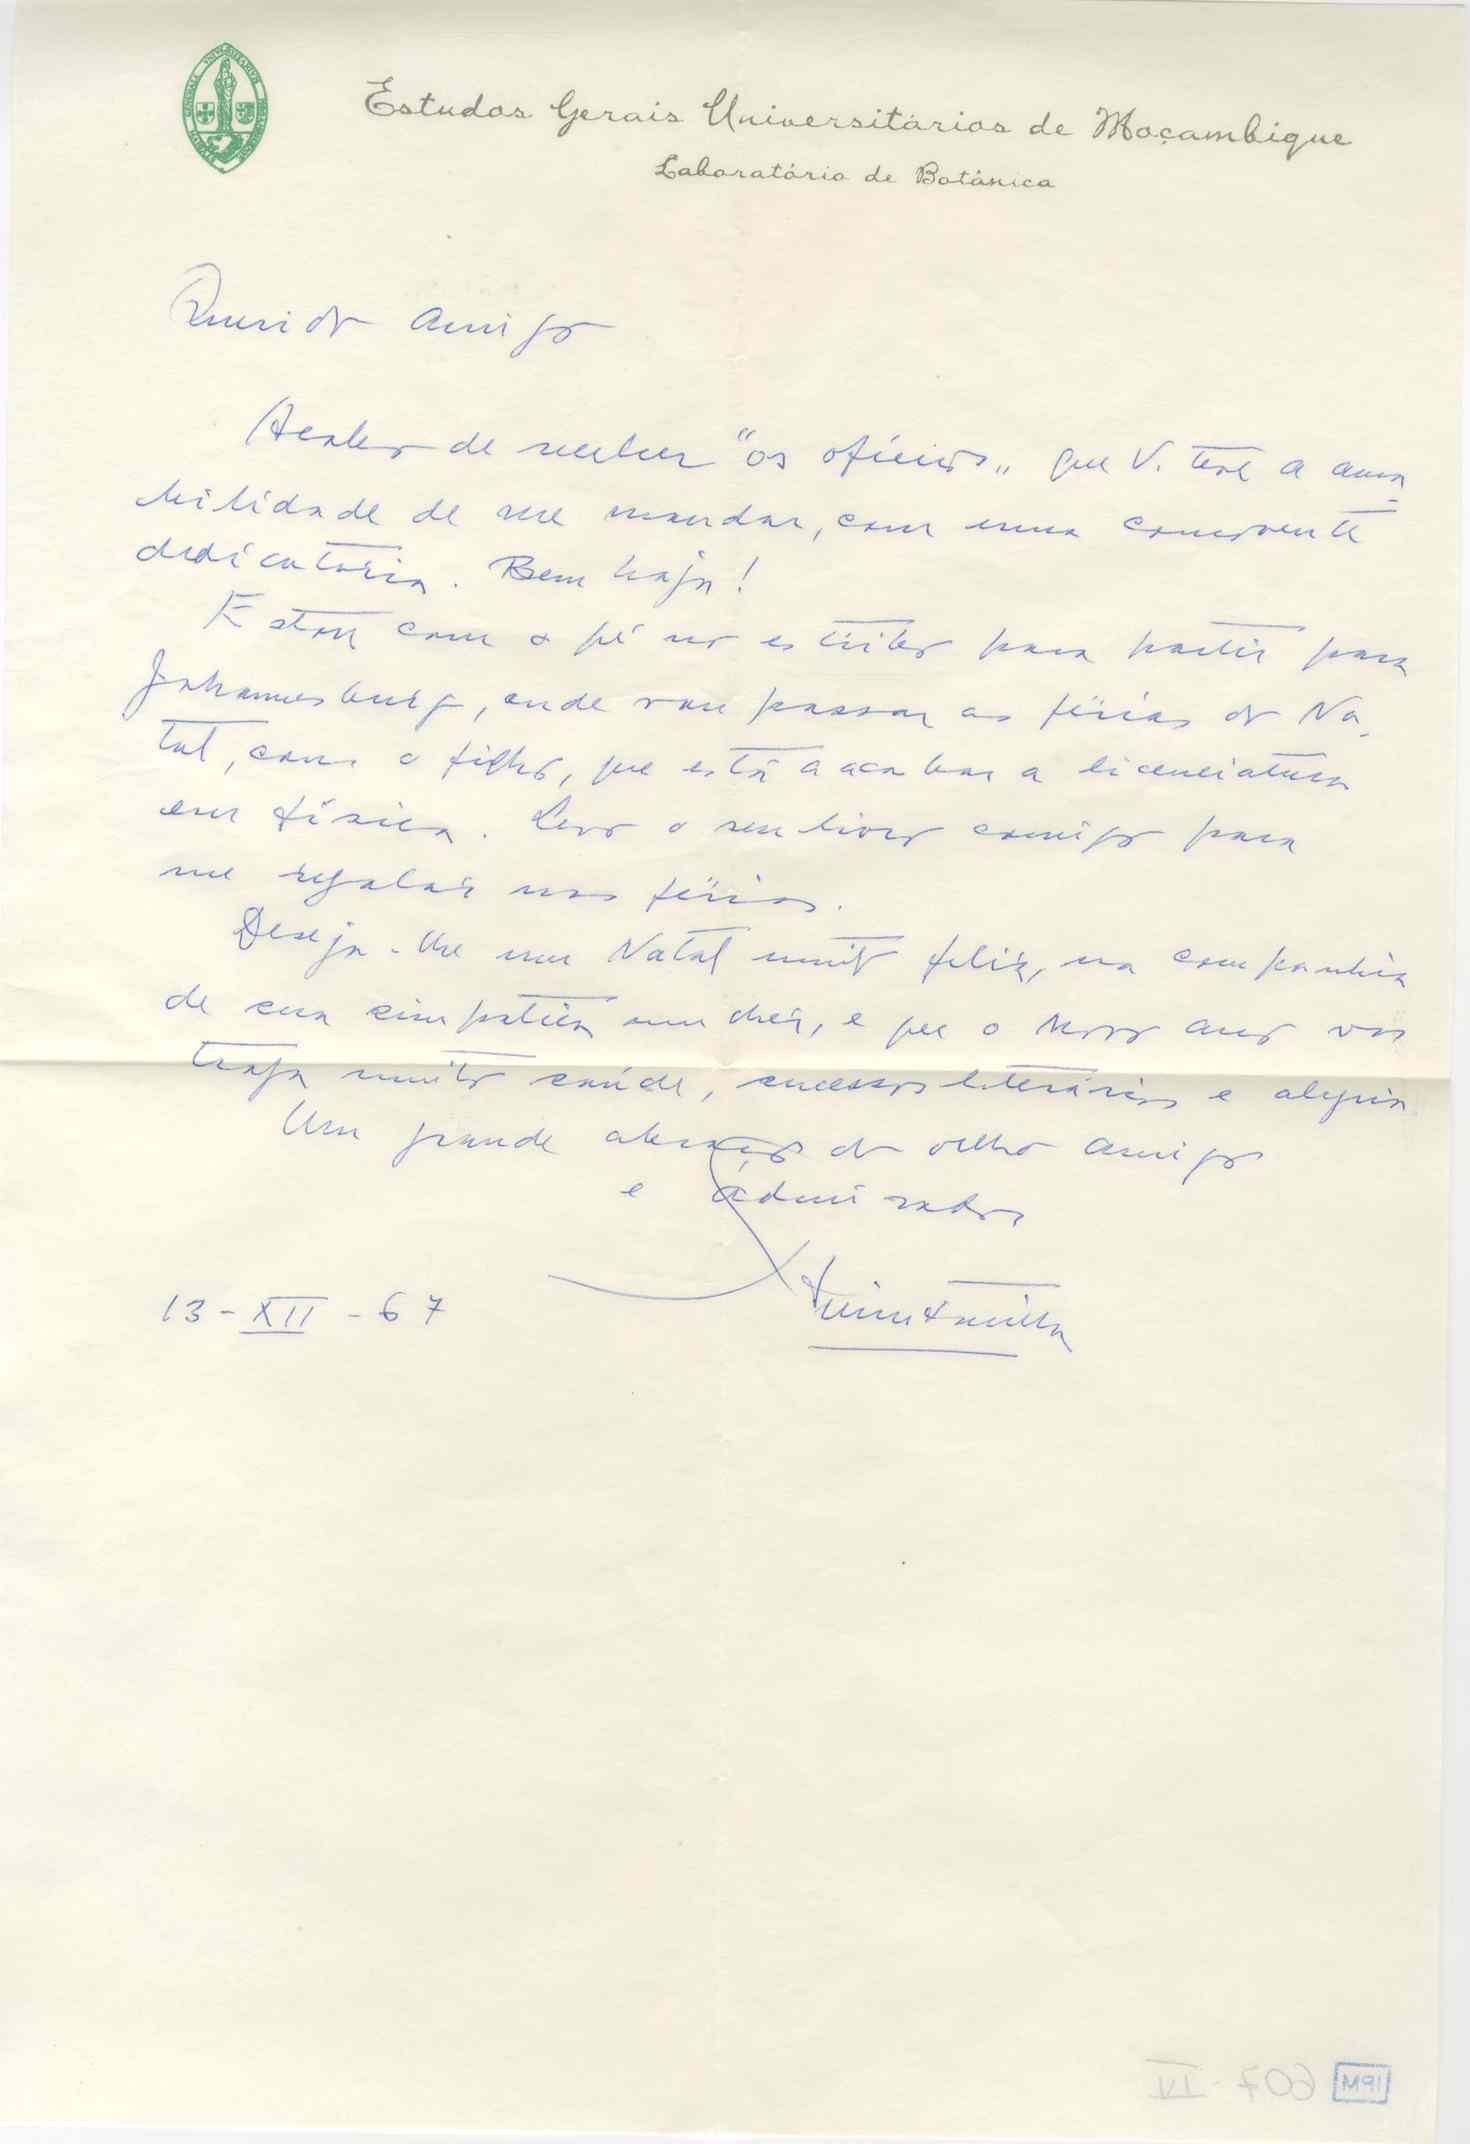 Estudos Gerais Universitários de Moçambique
Laboratório de Botânica
Querido Amigo
Acabo de receber "os ofícios„ que V. teve a ama
bilidade de me mandar, com uma comovente
dedicatória. Bem haja!
Estou com o pé no estribo para partir para
Johannesburg, onde vou passar as férias do Na-
tal, com o filho, que está a acabar a licenciatura
em física. Levo o seu livro comigo para
me regalar nas férias.
Desejo-lhe um Natal muito feliz, na companhia
de sua simpática mulher, e que o Novo ano vos
traga muita saúde, sucessos literários e alegria
Um grande abraço do velho amigo
e admirador
13-XII-67
IPM 607-IV